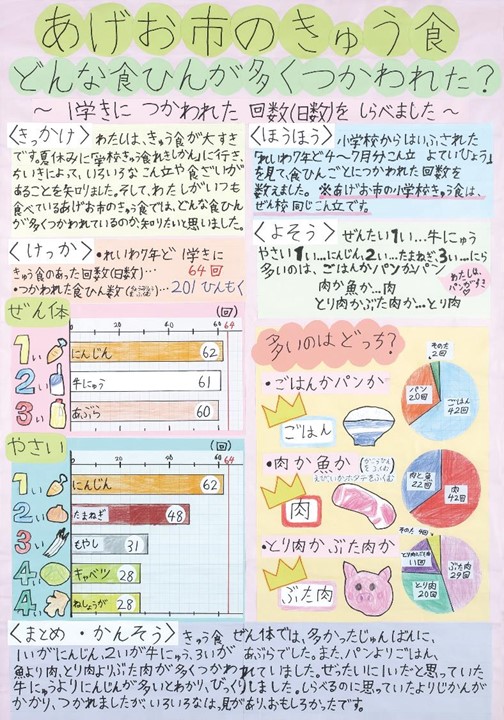 あげお市のきゅう食
どんな食ひんが多くつかわれた?
～1学きに つかわれた 回数(日数)を しらべました～
〈きっかけ〉 わたしは、きゅう食が大すき
です。夏休みに「学校きゅう食れきしかん」に行き、
ちいきによって、いろいろな こん立や 食ざいが
あることを知りました。そして、わたしがいつも
食べているあげお市のきゅう食では、どんな食ひん
が多くつかわれているのか知りたいと思いました。
〈ほうほう〉 小学校からはいふされた
「れいわ7年ど4～7月分こん立 よていひょう」
を見て、食ひんごとにつかわれた回数を
数えました。※あげお市の小学校きゅう食は、
ぜん校 同じこん立です。
〈けっか〉 ・れいわ7年ど 1学きに
きゅう食のあった回数(日数)… 64回
・つかわれた食ひん数… 201ひんもく
〈よそう〉 ぜんたい1い…牛にゅう
やさい1い…にんじん、2い…たまねぎ、3い…にら
多いのは、ごはんかパンか…パン
肉か魚か…肉
とり肉かぶた肉か…とり肉
わたしは、
パンがすき!
ぜん体
(回)
20 40 64
1い にんじん 62
2い 牛にゅう 61
3い あぶら 60
やさい
(回)
20 40 64
1い にんじん 62
2い たまねぎ 48
3い もやし 31
4い キャベツ 28
4い ねしょうが 28
多いのはどっち?
・ごはんかパンか
ごはん
その他
2回
パン
20回
ごはん
42回
・肉か魚か
肉
肉と魚
22回
肉
42回
・とり肉かぶた肉か
ぶた肉
その他 4回
11回
とり肉
20回
ぶた肉
29回
〈まとめ・かんそう〉 きゅう食 ぜん体では、多かったじゅんばんに、
1いがにんじん、2いが牛にゅう、3いが あぶらでした。また、パンよりごはん、
魚より肉、とり肉より、ぶた肉が多くつかわれていました。ぜったいに1いだと思っていた
牛にゅうよりにんじんが多いとわかり、びっくりしました。しらべるのに思っていたよりじかんが
かかり、つかれましたが、いろいろなはっ見があり、おもしろかったです。